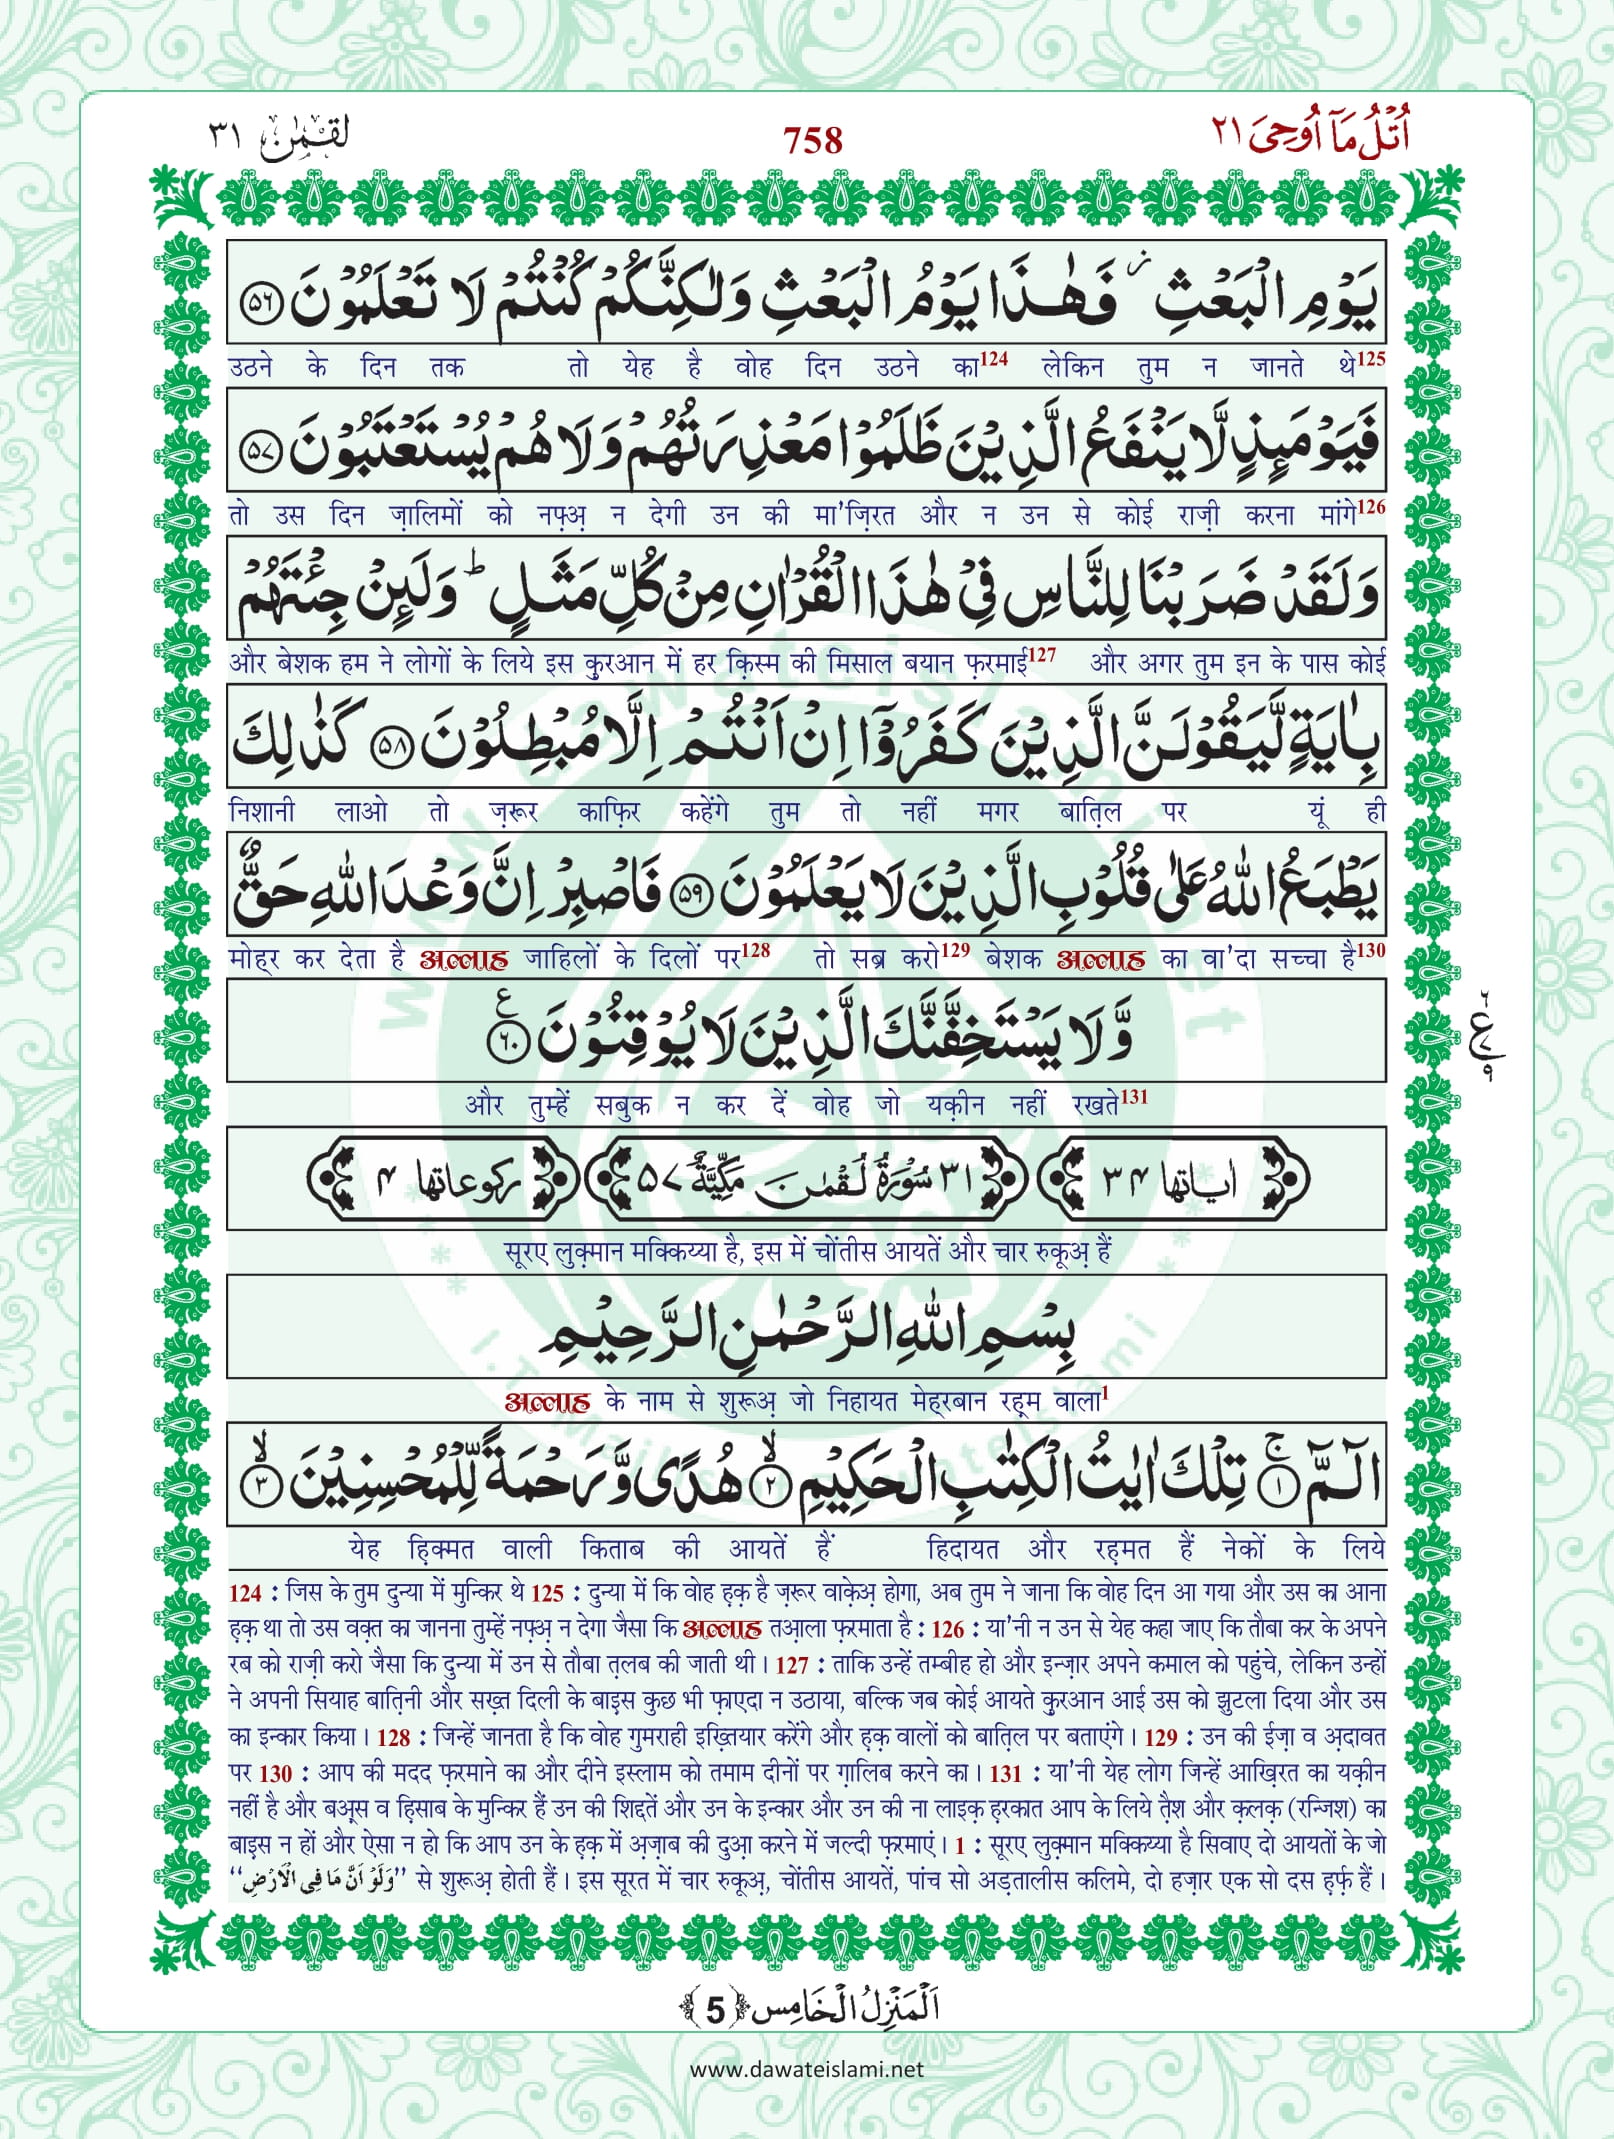 اُتْلُ مَاۤ اُوْحِیَ ۲۱
758
لقمٰن ۳۱
یَوْمِ الْبَعْثِ ؗ فَهٰذَا یَوْمُ الْبَعْثِ وَلٰكِنَّكُمْ كُنْتُمْ لَا تَعْلَمُوْنَ ﴿۵۶﴾
उठने के दिन तक तो येह है वोह दिन उठने का124 लेकिन तुम न जानते थे125
فَیَوْمَىِٕذٍ لَّا یَنْفَعُ الَّذِیْنَ ظَلَمُوْا مَعْذِرَتُهُمْ وَلَا هُمْ یُسْتَعْتَبُوْنَ ﴿۵۷﴾
तो उस दिन ज़ालिमों को नफ़्अ़ न देगी उन की मा'ज़िरत और न उन से कोई राज़ी करना मांगे126
وَلَقَدْ ضَرَبْنَا لِلنَّاسِ فِیْ هٰذَا الْقُرْاٰنِ مِنْ كُلِّ مَثَلٍ ؕ وَلَىِٕنْ جِئْتَهُمْ
और बेशक हम ने लोगों के लिये इस कु़रआन में हर क़िस्म की मिसाल बयान फ़रमाई127 और अगर तुम इन के पास कोई
بِاٰیَةٍ لَّیَقُوْلَنَّ الَّذِیْنَ كَفَرُوْۤا اِنْ اَنْتُمْ اِلَّا مُبْطِلُوْنَ ﴿۵۸﴾ كَذٰلِكَ
निशानी लाओ तो ज़रूर काफ़िर कहेंगे तुम तो नहीं मगर बात़िल पर यूं ही
یَطْبَعُ اللّٰهُ عَلٰى قُلُوْبِ الَّذِیْنَ لَا یَعْلَمُوْنَ ﴿۵۹﴾ فَاصْبِرْ اِنَّ وَعْدَ اللّٰهِ حَقٌّ
मोहर कर देता है अल्लाह जाहिलों के दिलों पर128 तो सब्र करो129 बेशक अल्लाह का वा'दा सच्चा है130
وَّلَا یَسْتَخِفَّنَّكَ الَّذِیْنَ لَا یُوْقِنُوْنَ ﴿۶۰﴾ ع
और तुम्हें सबुक न कर दें वोह जो यक़ीन नहीं रखते131
اٰیاتها ۳۴ ۳۱ سُوْرَةُ لُقْمٰنَ مَكِّیَّةٌ ۵۷ رکوعاتها ۴
सूरए लुक़्मान मक्किय्या है, इस में चोंतीस आयतें और चार रुकूअ़ हैं
بِسْمِ اللّٰهِ الرَّحْمٰنِ الرَّحِیْمِ
अल्लाह के नाम से शुरूअ़ जो निहायत मेहरबान रह़्म वाला1
الٓمّٓ ﴿۱﴾ۚ تِلْكَ اٰیٰتُ الْكِتٰبِ الْحَكِیْمِ ﴿۲﴾ۙ هُدًى وَّرَحْمَةً لِّلْمُحْسِنِیْنَ ﴿۳﴾ۙ
येह ह़िक्मत वाली किताब की आयतें हैं हिदायत और रह़मत हैं नेकों के लिये
124 : जिस के तुम दुन्या में मुन्किर थे 125 : दुन्या में कि वोह ह़क़ है ज़रूर वाकेअ़ होगा, अब तुम ने जाना कि वोह दिन आ गया और उस का आना
ह़क़ था तो उस वक़्त का जानना तुम्हें नफ़्अ़ न देगा जैसा कि अल्लाह तआ़ला फ़रमाता है : 126 : या'नी न उन से येह कहा जाए कि तौबा कर के अपने
रब को राज़ी करो जैसा कि दुन्या में उन से तौबा त़लब की जाती थी। 127 : ताकि उन्हें तम्बीह हो और इन्ज़ार अपने कमाल को पहुंचे, लेकिन उन्हों
ने अपनी सियाह बात़िनी और सख़्त दिली के बाइस कुछ भी फ़ाएदा न उठाया, बल्कि जब कोई आयते कु़रआन आई उस को झुटला दिया और उस
का इन्कार किया। 128 : जिन्हें जानता है कि वोह गुमराही इख़्तियार करेंगे और ह़क़ वालों को बात़िल पर बताएंगे। 129 : उन की ईज़ा व अ़दावत
पर 130 : आप की मदद फ़रमाने का और दीने इस्लाम को तमाम दीनों पर ग़ालिब करने का। 131 : या'नी येह लोग जिन्हें आख़िरत का यक़ीन
नहीं है और बअ़्स व ह़िसाब के मुन्किर हैं उन की शिद्दतें और उन के इन्कार और उन की ना लाइक़ ह़रकात आप के लिये तै़श और क़लक़ (रन्जिश) का
बाइस न हों और ऐसा न हो कि आप उन के ह़क़ में अ़ज़ाब की दुआ़ करने में जल्दी फ़रमाएं। 1 : सूरए लुक़्मान मक्किय्या है सिवाए दो आयतों के जो
“وَلَوْ اَنَّ مَا فِی الْاَرْضِ” से शुरूअ़ होती हैं। इस सूरत में चार रुकूअ़, चोंतीस आयतें, पांच सो अड़तालीस कलिमे, दो हज़ार एक सो दस ह़र्फ़ हैं।
اَلْمَنْزِلُ الْخَامِس ﴿5﴾
www.dawateislami.net